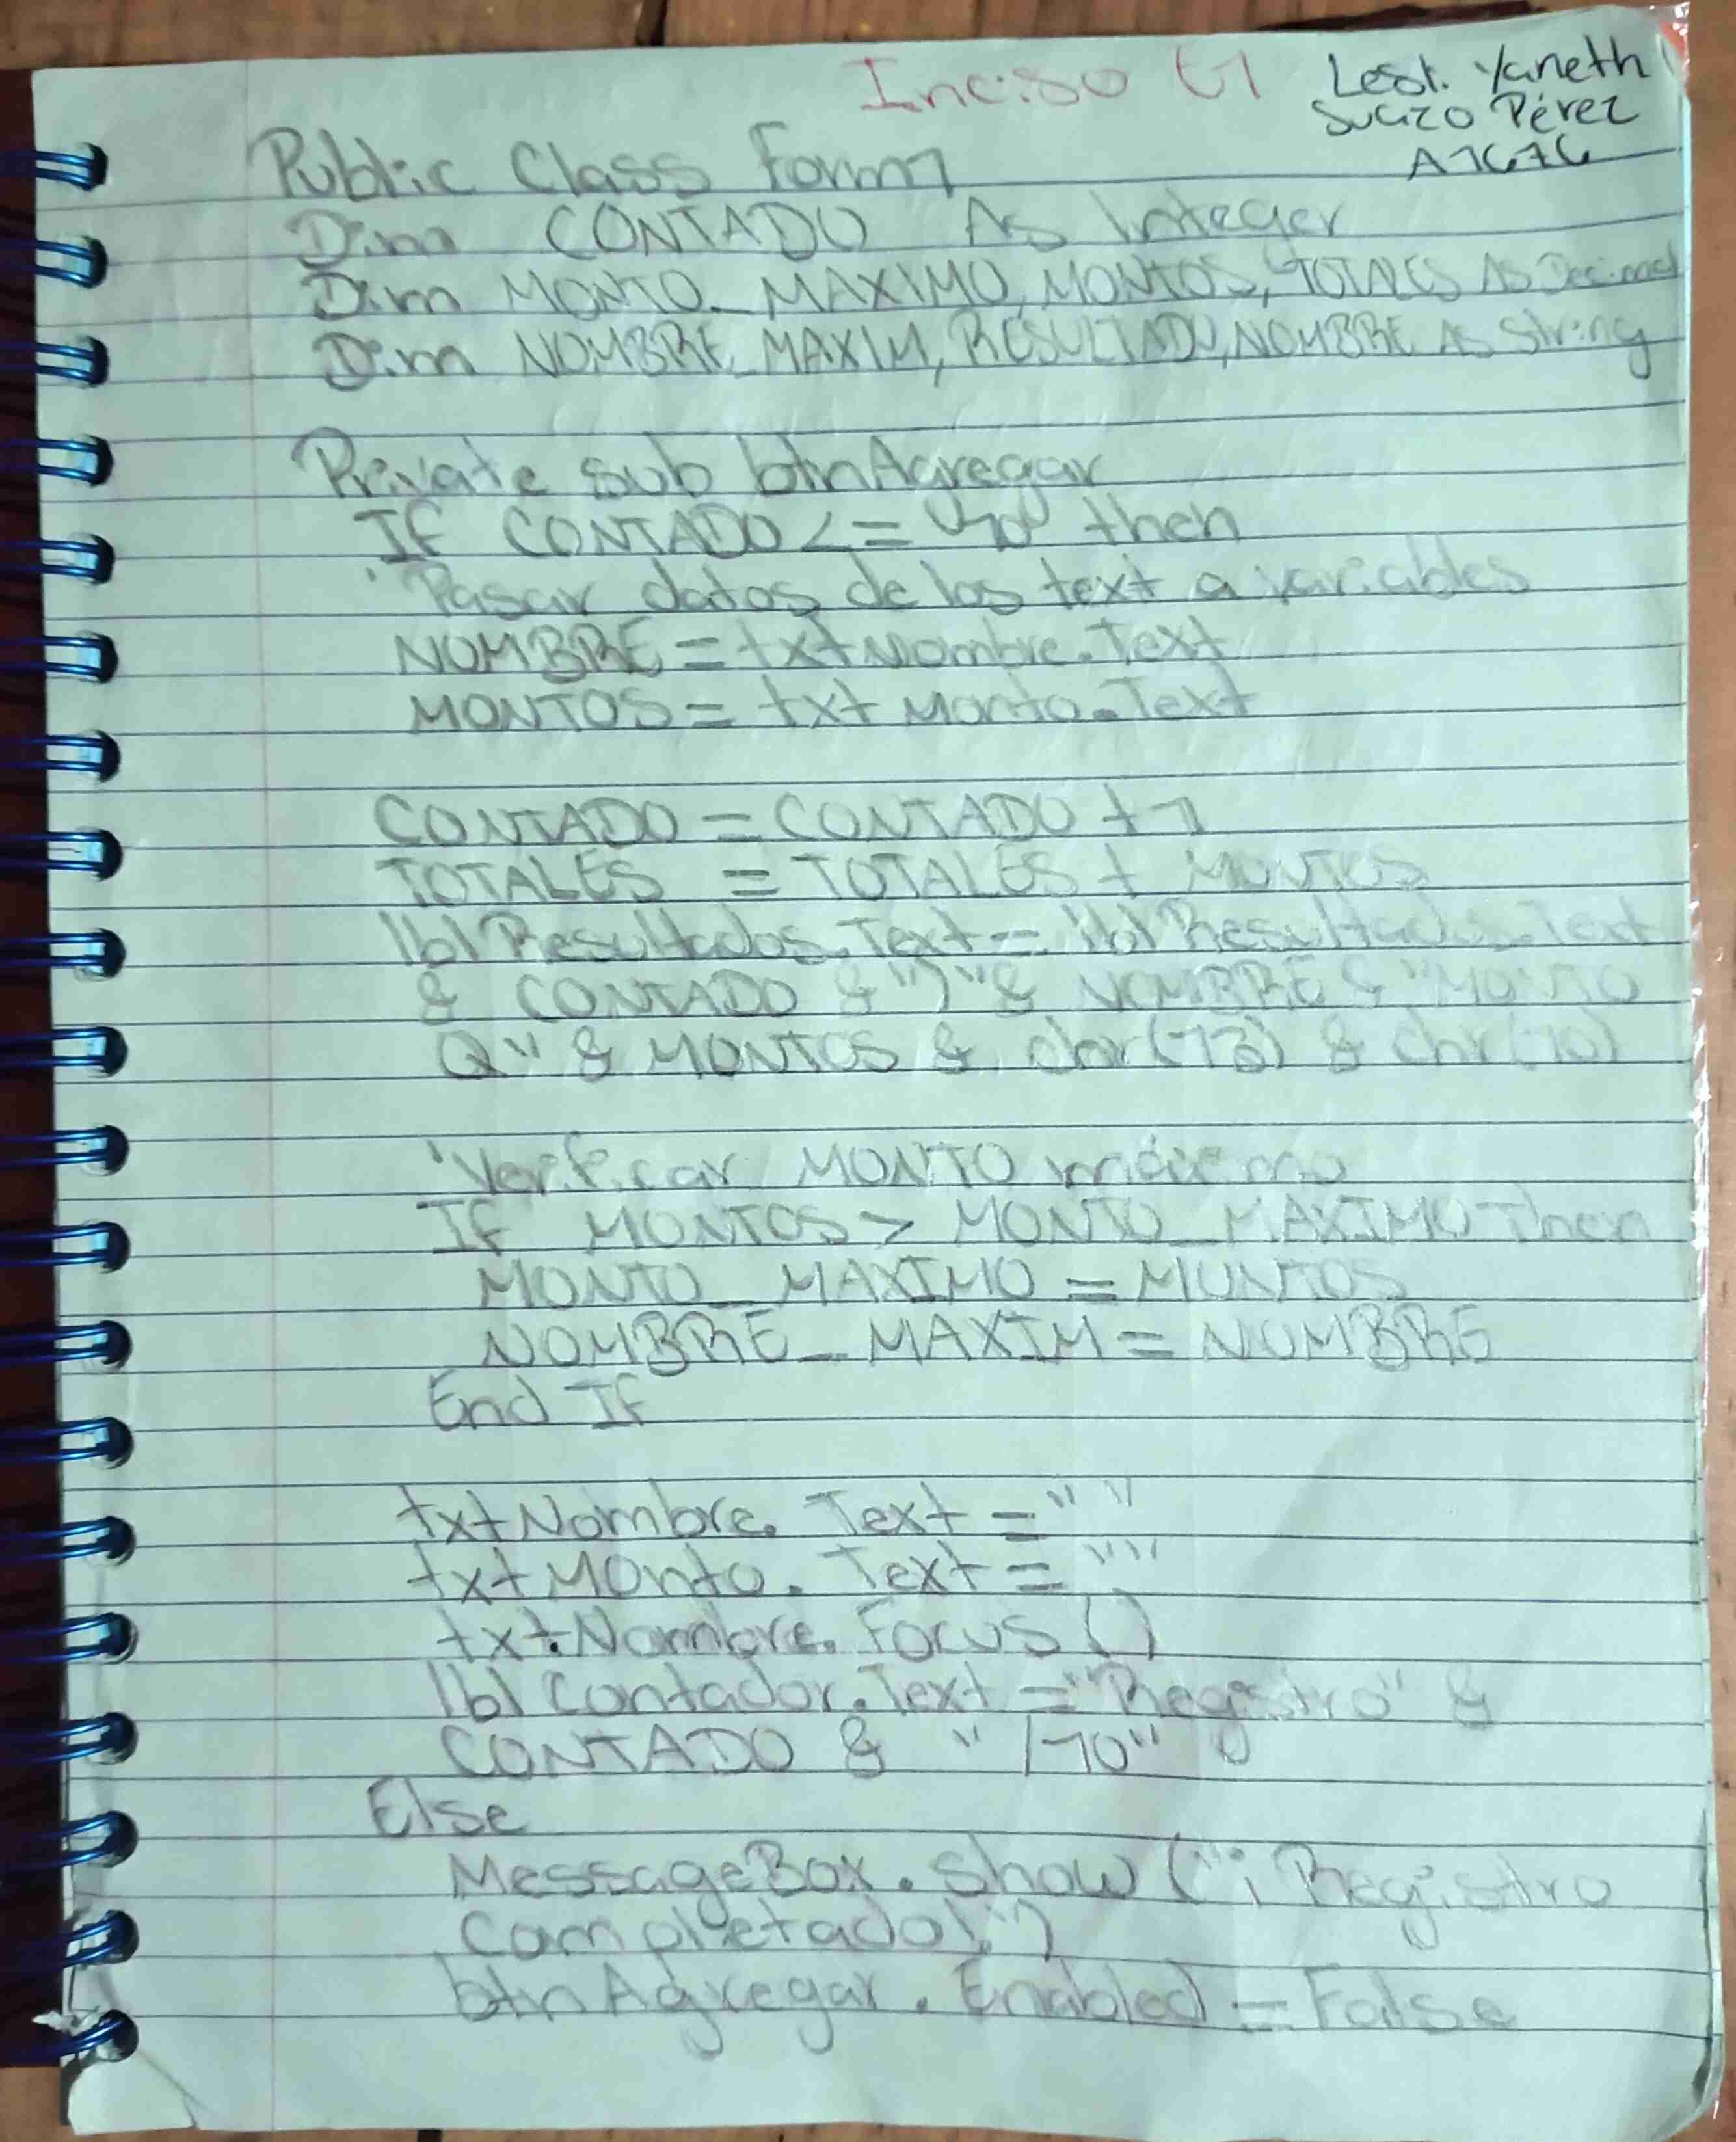 Inciso G1
Lesl. Yaneth
Suazo Pérez
A1676
Public Class Form1
Dim CONTADO As Integer
Dim MONTO_MAXIMO, MONTOS, TOTALES As Decimal
Dim NOMBRE_MAXIM, RESULTADO, NOMBRE As String
Private sub btnAgregar
If CONTADO <= "10" then
'Pasar datos de los text a variables
NOMBRE = txtNombre.Text
MONTOS = txt Monto.Text
CONTADO = CONTADO + 1
TOTALES = TOTALES + MONTOS
lbl Resultados.Text = lbl Resultados.Text
& CONTADO & ")" & NOMBRE & "MONTO
Q" & MONTOS & chr(13) & chr(10)
'Verificar MONTO máximo
If MONTOS > MONTO_MAXIMO Then
MONTO_MAXIMO = MONTOS
NOMBRE_MAXIM = NOMBRE
End If
txtNombre. Text = " "
txtMonto. Text = ""
txt.Nombre. Focus ()
lbl Contador.Text = "Registro" &
CONTADO & " /10"
Else
MessageBox. show ("¡ Registro
Completado!")
btn Agregar. Enabled = False